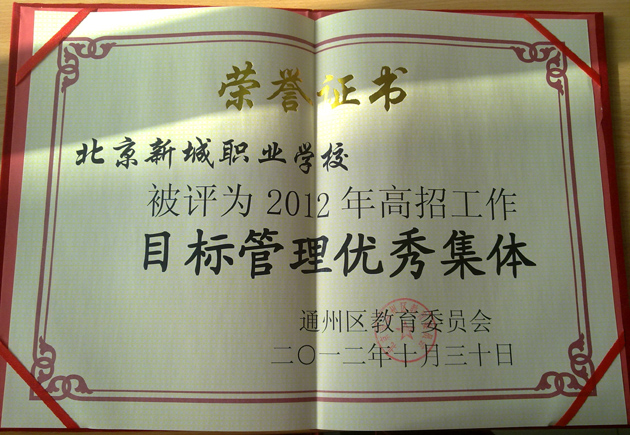 荣誉证书
北京新城职业学校
被评为2012年高招工作
目标管理优秀集体
通州区教育委员会
二〇一二年十月三十日